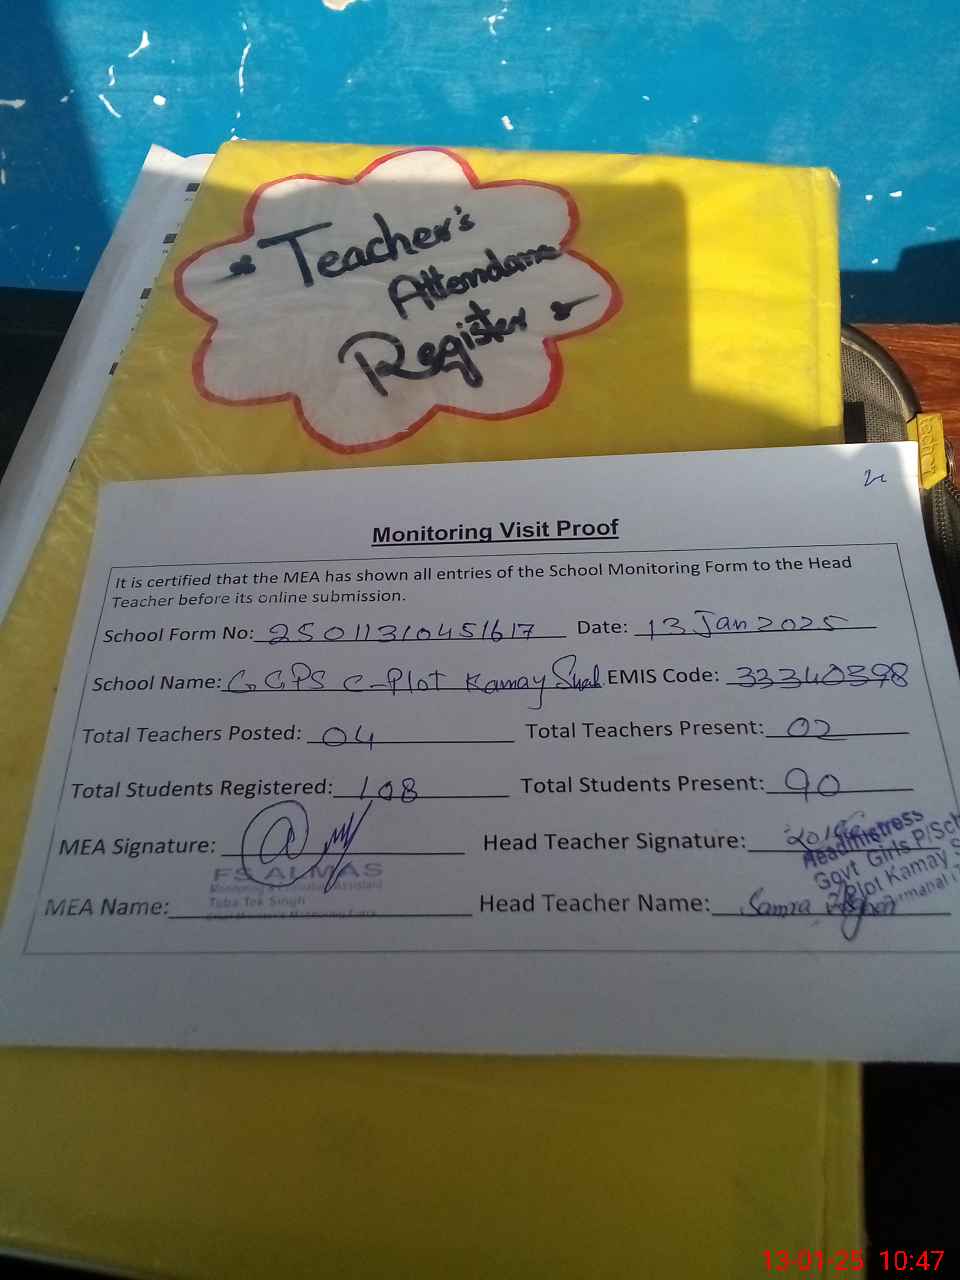 Teacher's
Attendance
Register
teacher
Monitoring Visit Proof
It is certified that the MEA has shown all entries of the School Monitoring Form to the Head
Teacher before its online submission.
School Form No: 25011310451617 Date: 13 Jan 2025
School Name: GGPS C-Plot Kamay Shah EMIS Code: 33340398
Total Teachers Posted: 04 Total Teachers Present: 02
Total Students Registered: 108 Total Students Present: 90
MEA Signature: Head Teacher Signature:
FS ALMAS
Monitoring & Evaluation Assistant
Toba Tek Singh
Headmistress
Govt Girls P/Sch
Plot Kamay S
MEA Name: Head Teacher Name: Samra
13-01-25 10:47